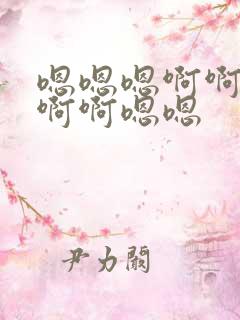 嗯嗯嗯啊啊
啊啊嗯嗯
尹力關